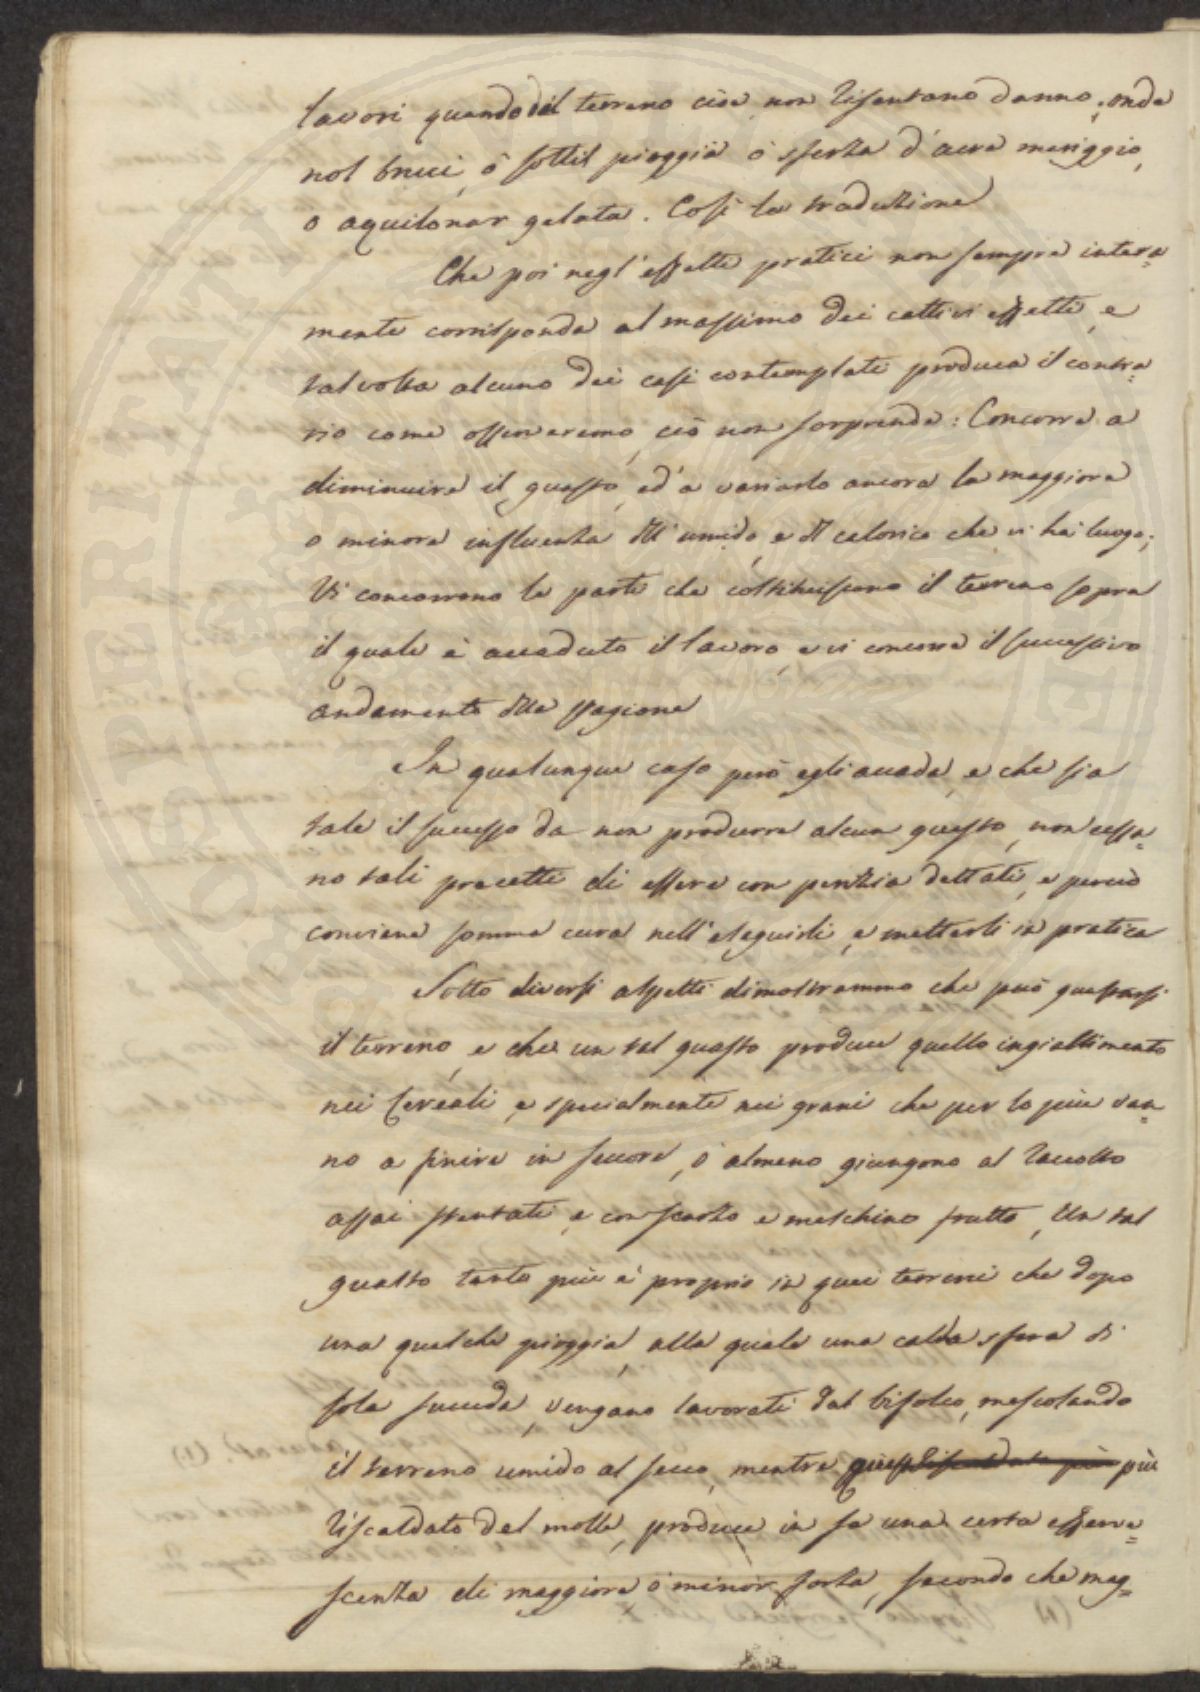 lavori quando il terreno cioè non risentano danno, onde
nol bruci, ò sottil pioggia ò sferza d'aura meriggio,
o aquilonar gelata. Così la traduzione
Che poi negl'effetti pratici non sempre intera=
mente corrisponda al massimo dei cattivi effetti, e
talvolta alcuno dei casi contemplati produca il contra=
rio come osserveremo, ciò non sorprenda: Concorre a
diminuire il guasto, ed'a variarlo ancora la maggiore
o minore influenza dell'umido, e del calorico che vi ha luogo;
Vi concorrono le parti che costituiscono il terreno sopra
il quale è accaduto il lavoro, e vi concorre il successivo
andamento della stagione
In qualunque caso però egli accada, e che sia
tale il successo da non produrre alcun guasto, non cessa=
no tali precetti di essere con perizia dettati, e perciò
conviene somma cura nell'eseguirli, e metterli in pratica
Sotto diversi aspetti dimostrammo che può guastarsi
il terreno, e che un tal guasto produce quello ingiallimento
nei Cereali, e specialmente nei grani che per lo più van=
no a finire in seccore, ò almeno giungono al raccolto
assai stentati, e con scarso e meschino frutto, Un tal
guasto tanto più è proprio in quei terreni che dopo
una qualche pioggia, alla quale una calda sfera di
sole succeda, vengano lavorati dal bifolco, mescolando
il terreno umido al secco, mentre più
riscaldato del molle, produce in se una certa efferve=
scenza di maggiore, ò minor forza, secondo che mag=